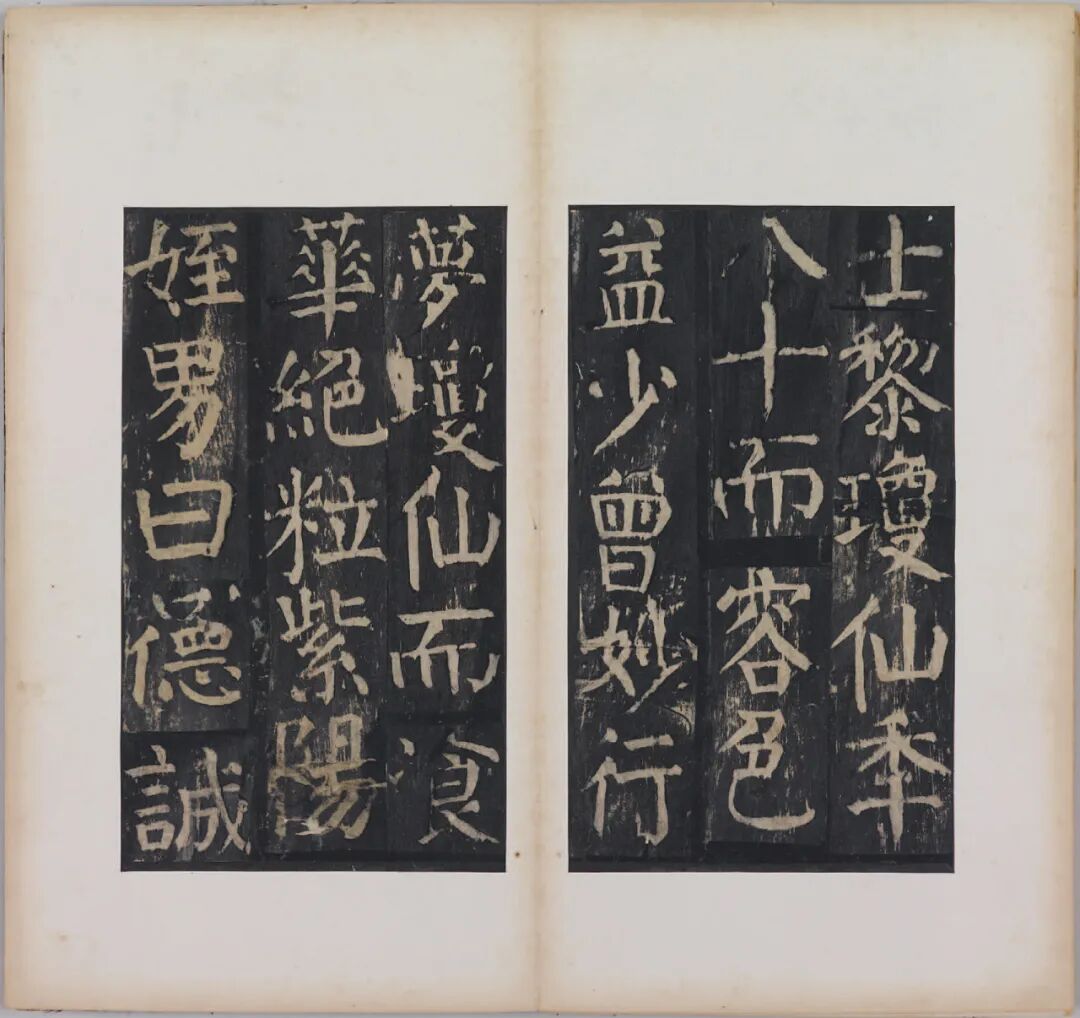 士黎瓊仙秊
八十而容色
益少曾妙行
夢瓊仙而飡
華絕粒紫陽
姪男曰德誠